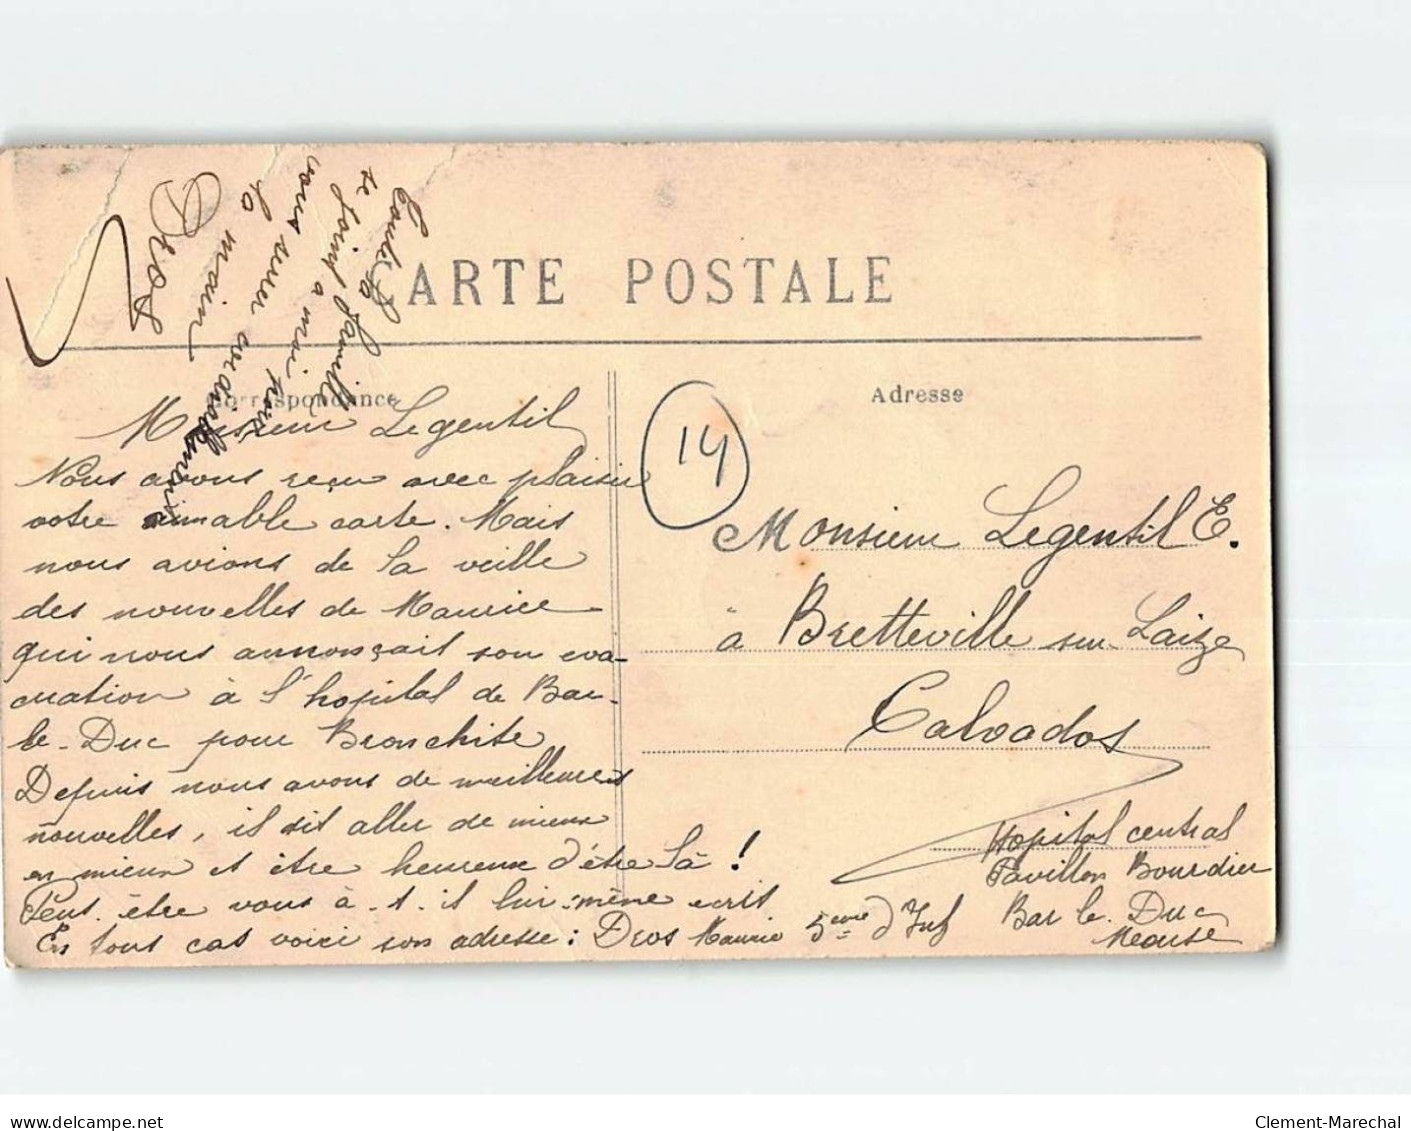 CARTE POSTALE
Correspondance
Adresse
14
Monsieur Legentil
Nous avons reçu avec plaisir
votre aimable carte. Mais
nous avions de la veille
des nouvelles de Maurice
qui nous annonçait son éva-
cuation à l'hopital de Bar-
le-Duc pour Bronchite
Depuis nous avons de meilleures
nouvelles, il dit aller de mieux
en mieux et être heureux d'être là !
Peut-être vous a-t-il lui-même écrit
En tous cas voici son adresse : Dros Maurice 5eme d'Inf
Hopital central
Pavillon Bourdier
Bar le-Duc
Meouse
Toute la famille
se joint à moi pour
vous serrer cordiallement
la main
Dros
Monsieur Legentil E.
à Bretteville sur Laize
Calvados
Clement-Marechal